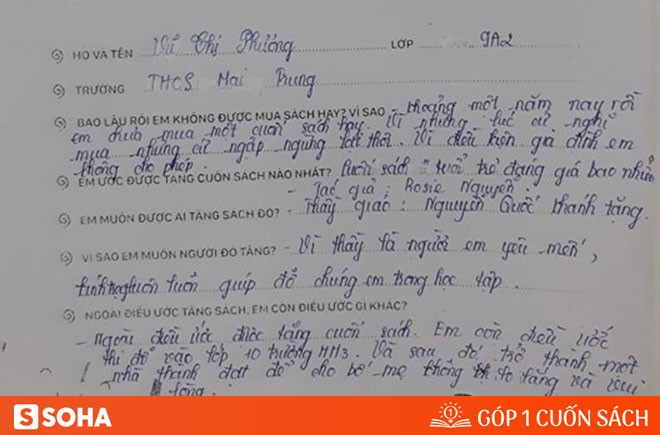 HỌ VÀ TÊN Vũ Thị Phượng LỚP 9A2
TRƯỜNG THCS Mai Trung
BAO LÂU RỒI EM KHÔNG ĐƯỢC MUA SÁCH HAY? VÌ SAO khoảng một năm nay rồi
em chưa mua một cuốn sách hay. Vì những lúc cứ nghĩ
mua nhưng cứ ngập ngừng rồi thôi. Vì điều kiện gia đình em
không cho phép
EM ƯỚC ĐƯỢC TẶNG CUỐN SÁCH NÀO NHẤT? Cuốn sách "tuổi trẻ đáng giá bao nhiêu
- Tác giả: Rosie Nguyễn.
EM MUỐN ĐƯỢC AI TẶNG SÁCH ĐÓ? - Thầy giáo: Nguyễn Quốc Khanh tặng.
VÌ SAO EM MUỐN NGƯỜI ĐÓ TẶNG? - Vì thầy là người em yêu mến,
luôn luôn giúp đỡ chúng em trong học tập.
NGOÀI ĐIỀU ƯỚC TẶNG SÁCH, EM CÒN ĐIỀU ƯỚC GÌ KHÁC?
- Ngoài điều ước được tặng cuốn sách. Em còn điều ước
thi đỗ vào lớp 10 trường HH3. Và sau đó trở thành một
nhà thành đạt để cho bố mẹ không lo lắng và vui
lòng.
SOHA GÓP 1 CUỐN SÁCH